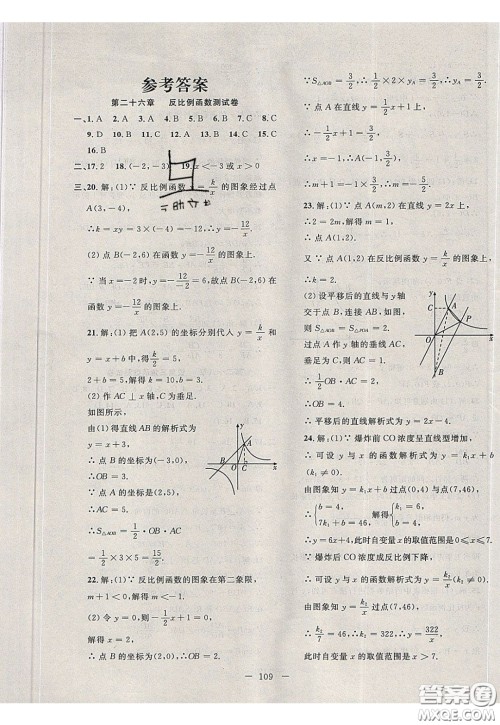 参考答案
第二十六章　反比例函数测试卷
一、1. A　2. A　3. A　4. B　5. B　6. C　7. B　8. C
9. D　10. B　11. A　12. A　13. C　14. B　15. C
16. B
二、17. 2　18. (-2,-3)　19. x<-3或x>0
三、20. 解:(1)∵ 反比例函数 y=k/x 的图象经过点
A(3,-4),
∴k=xy=3×(-4)=-12.
(2)点B(-2,6)在函数 y=-12/x 的图象上.
∵当x=-2时,y=-12/-2=6,故点B(-2,6)在函
数 y=-12/x 的图象上.
21. 解:(1)把A(2,5)的坐标分别代入 y=k/x 和
y=x+b 中,得 k/2=5,
2+b=5.解得 k=10,b=3.
(2)作 AC⊥x轴,C为垂足.
如图所示,
由(1)得直线AB的解析式为
y=x+3;
∴点B的坐标为(-3,0),
∴OB=3.
∵点A的坐标是(2,5),
∴AC=5.
∴S△AOB=1/2·OB·AC
=1/2×3×5=15/2.
22. 解:(1)∵ 反比例函数的图象在第二象限,
m+1<0,解得 m<-1.
(2)令 y=0,则
解得 x=2.
∴点B的坐标为(2,0),∴OB=2.
∵S△AOB=3/2,∴1/2×2×
∵点A在直线 y=-1/2x+1上,
∴点A的坐标为
∴m+1=-3/2,∴m=-5/2.
23. 解:(1)∵点A(m,2)在直线y=2x上,
∴2=2m,∴m=1,∴点A(1,2).
又∵点A(1,2)在反比例函数 y=k/x 的图象上,
∴k=2.
(2)设平移后的直线与y轴
交于点B,连接AB,如图,则
S△AOB=S△POA=2.
过点A作y轴的垂线AC,
垂足为C,则AC=1.
∴1/2OB·AC=2,
∴OB=4.
∴平移后的直线解析式为y=2x-4.
24. 解:(1)∵爆炸前CO浓度呈直线型增加,
∴可设y与x的函数解析式为y=k₁x+b
(k₁≠0).
由图象知 y=k₁x+b 过点(0,4)与(7,46),
∴{b=4, 7k₁+b=46. 解得{k₁=6, b=4.
∴y=6x+4,此时自变量x的取值范围是0≤x≤7.
∵爆炸后CO浓度成反比例下降,
∴可设y与x的函数解析式为 y=k₂/x(k₂≠0).
由图象知 y=k₂/x 过点(7,46),
∴k₂/7=46,∴k₂=322.∴y=322/x,
此时自变量x的取值范围是x>7.
— 109 —
答案圈
MXQE.COM